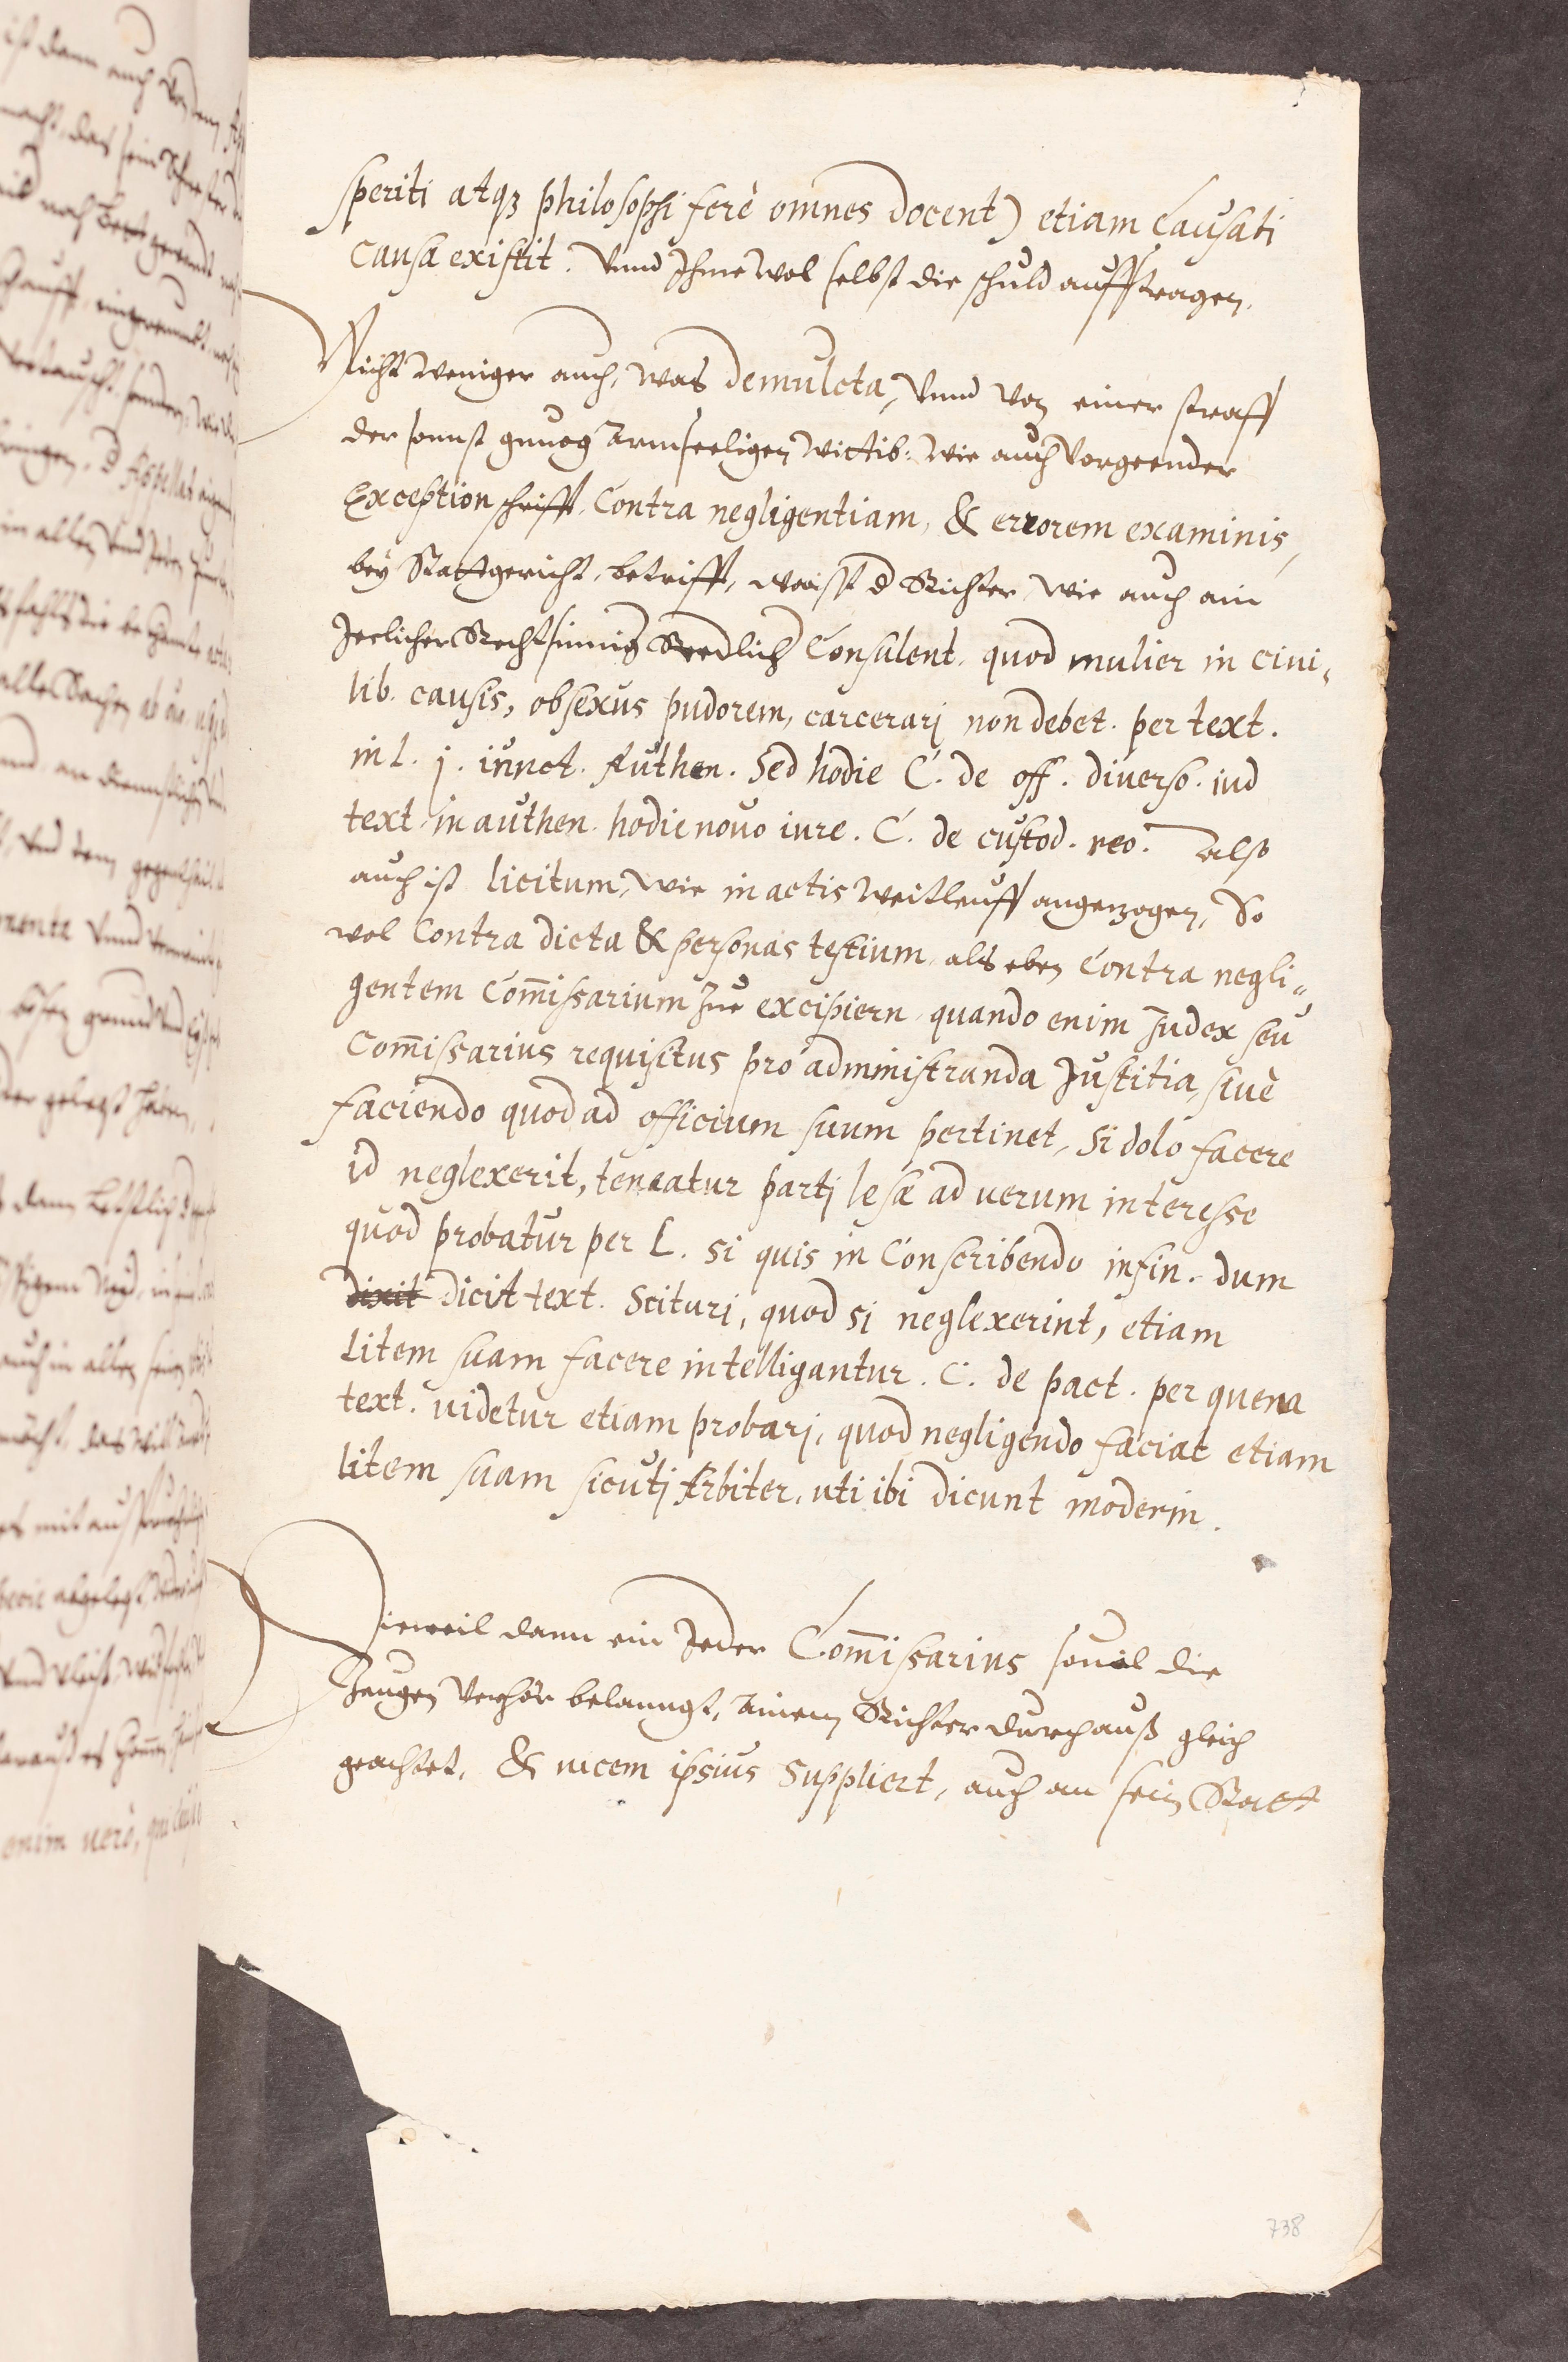 speriti atqꝫ philosophi ferè omnes docent) etiam Causati
causa existit. Vnnd Ihme wol selbst die schuld aufftragen.
Nicht weniger auch, was de mulcta, Vnnd von einer straff
der sonnst gnuog Armseeligen Wittib. wie auch vorgeender
Exception schrifft, Contra negligentiam, & errorem examinis,
bey Stattgericht, betrifft, waist d Richter, wie auch ain
Jeelicher Rechtsinnig Redlich Consulent. quod mulier in ciui-
lib. causis, ob sexus pudorem, carcerarj non debet. per text.
in l. j. iunct. Authen. Sed hodie C. de off. diuerso. iud
text. in authen. hodie nouo iure. C. de custod. reo. Also
auch ist licitum, wie in actis weitleuff angezogen, So
wol Contra dicta & personas testium, als eben Contra negli-
gentem Com̄issarium zue excipiern. quando enim Judex seu
Com̄issarius requisitus pro administranda Justitia, siuè
faciendo quod ad officium suum pertinet, si dolo facere
id neglexerit, teneatur partj lesæ ad uerum interesse
quod probatur per L. si quis in Conscribendo in fin. dum
dixit dicit text. Scituri, quod si neglexerint, etiam
litem suam facere intelligantur. C. de pact. per quem
text. uidetur etiam probarj, quod negligendo faciat etiam
litem suam sicutj Arbiter, uti ibi dicunt moderin.
Dieweil dann ein Jeder Com̄issarius souil die
Zeugen Verhör belanngt, ainem Richter durchauß gleich
geachtet, & uicem ipsius Suppliert, auch an sein Statt
738